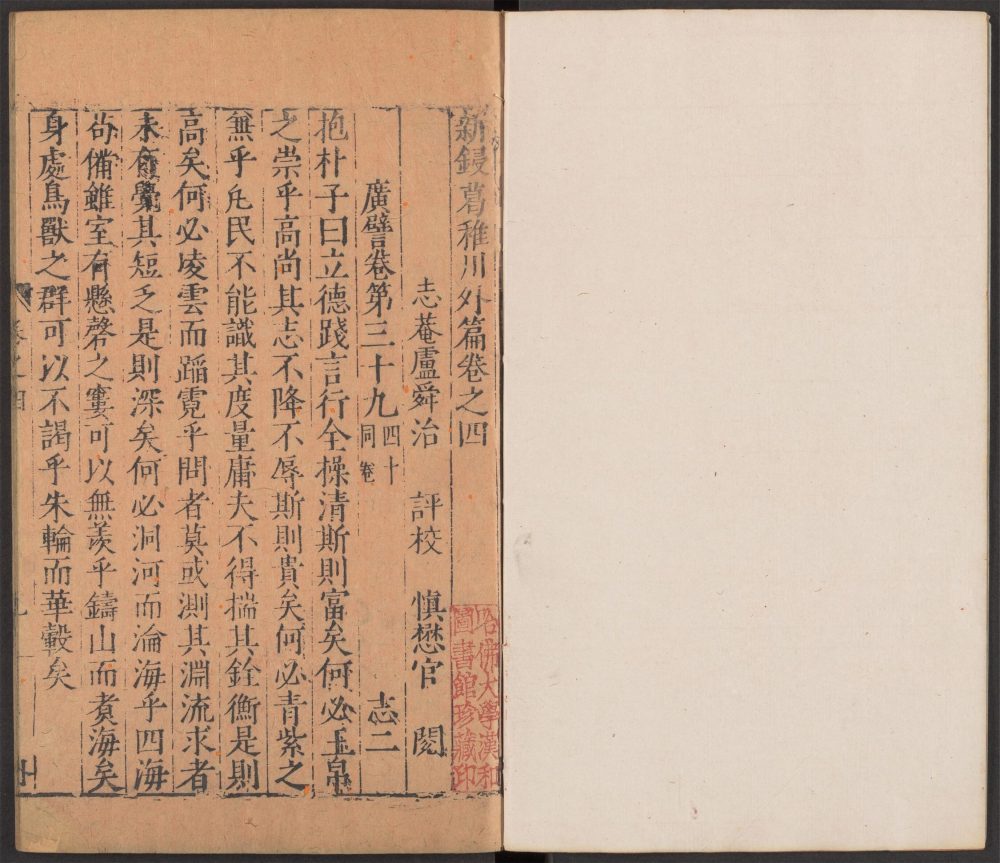 新鋟葛稚川外篇卷之四
志菴盧舜治 評校 慎懋官 閱
廣譬卷第三十九 四十同卷 志二
抱朴子曰立德踐言行全操清斯則富矣何必玉帛
之崇乎高尚其志不降不辱斯則貴矣何必青紫之
無乎凡民不能識其度量庸夫不得揣其銓衡是則
高矣何必凌雲而蹈霓乎問者莫或測其淵流求者
未有覺其短乏是則深矣何必洞河而淪海乎四海
苟備雖室有懸磬之窶可以無羨乎鑄山而煑海矣
身處鳥獸之群可以不謁乎朱輪而華轂矣
卷之四
哈佛大學漢和
圖書館珍藏印